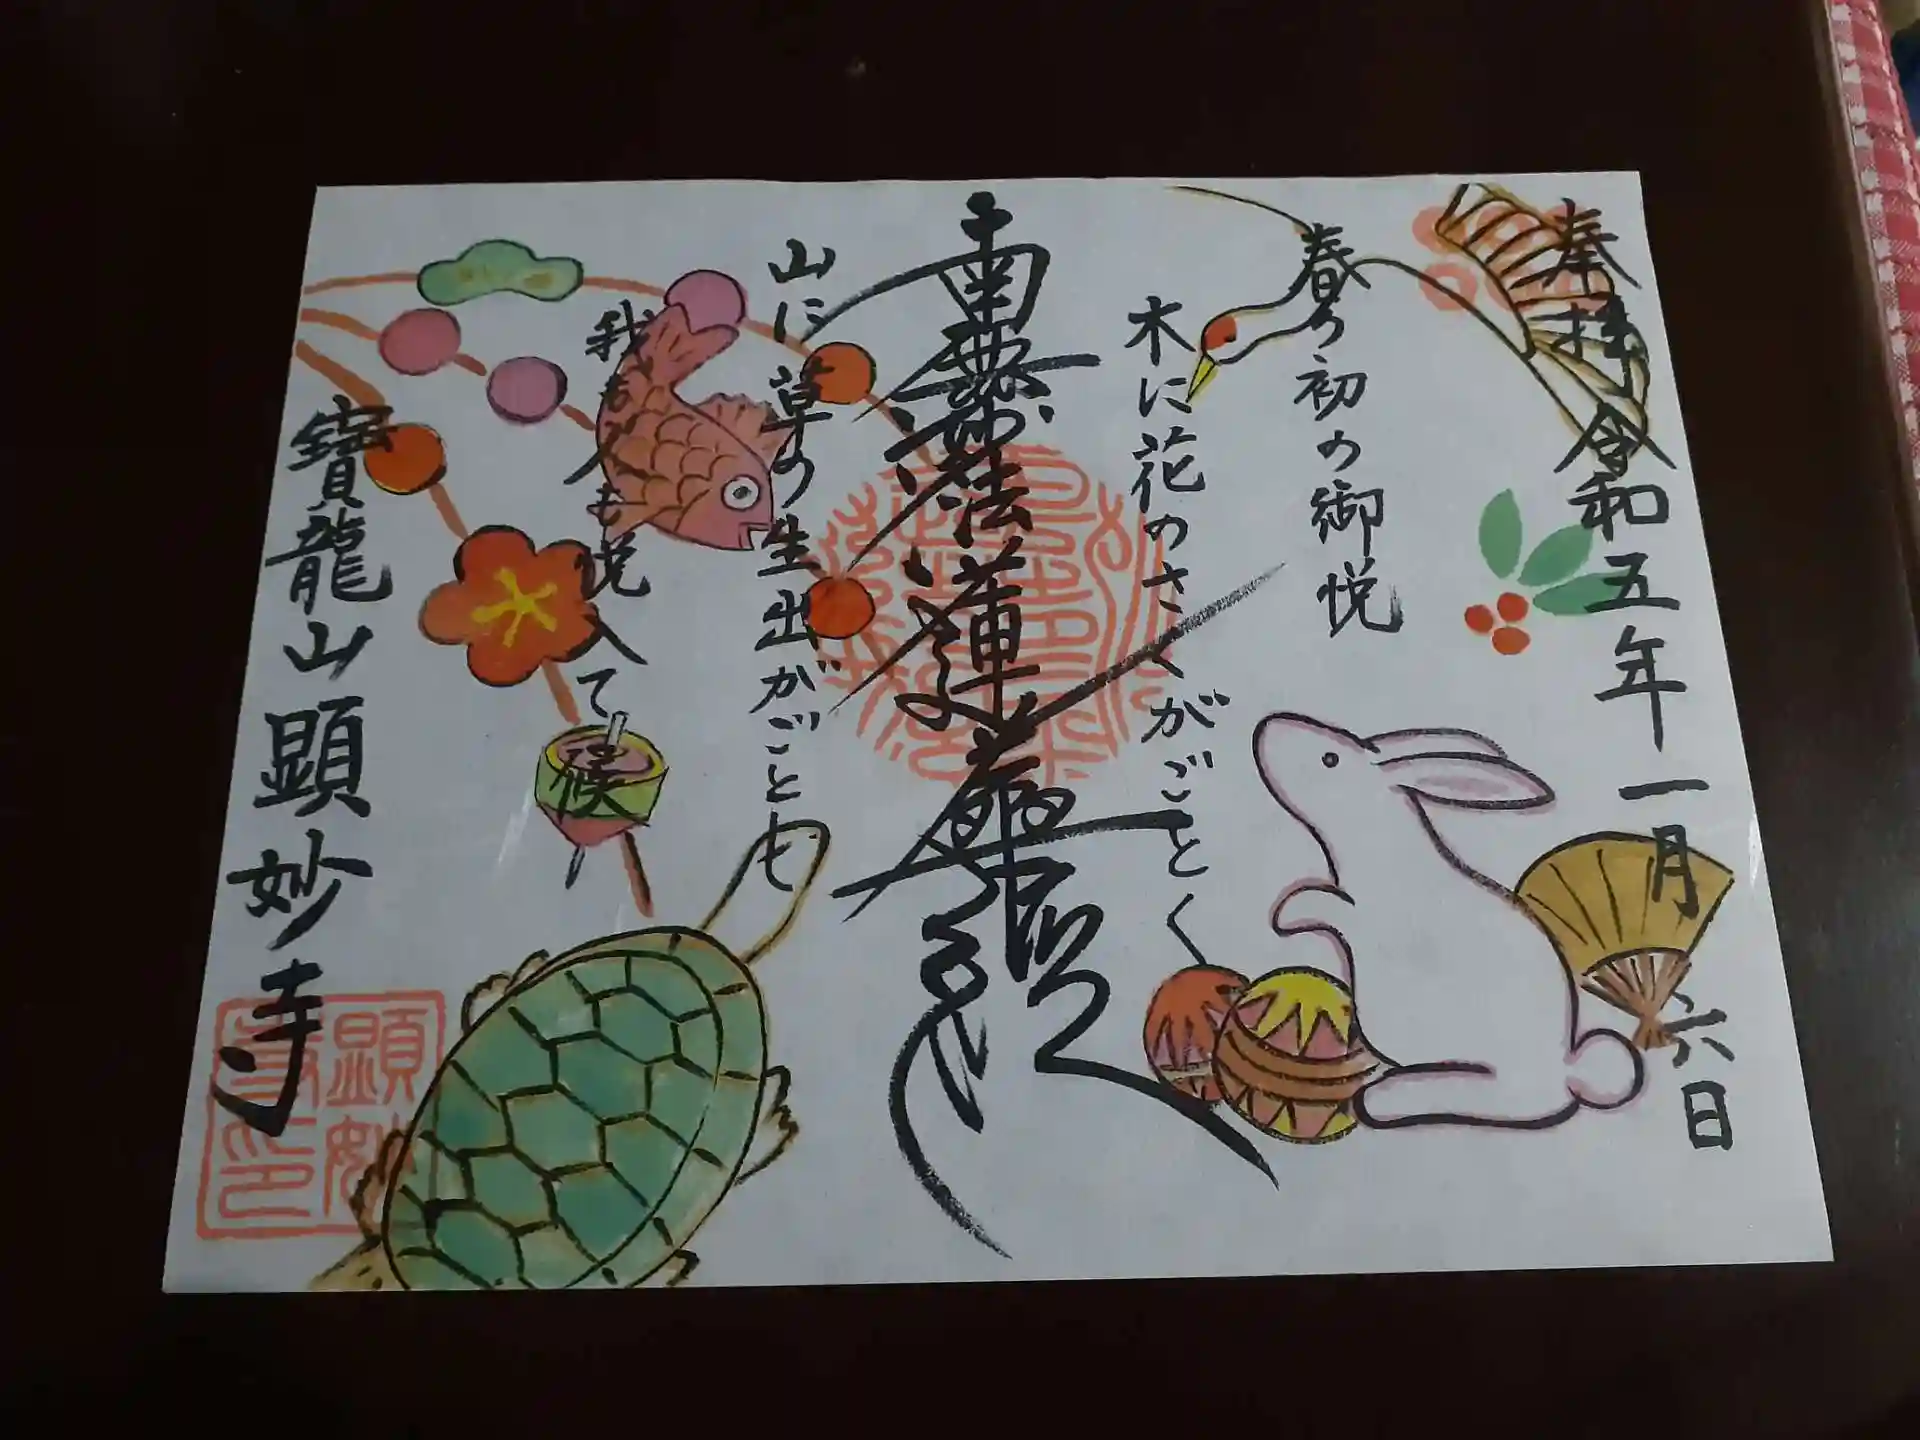 奉拝 令和五年一月六日
春の初の御悦
木に花のさくがごとく
南無妙法蓮華経
山に草の生出がごとし
我も人も悦入て候
寶龍山 顕妙寺
顕妙
寺印